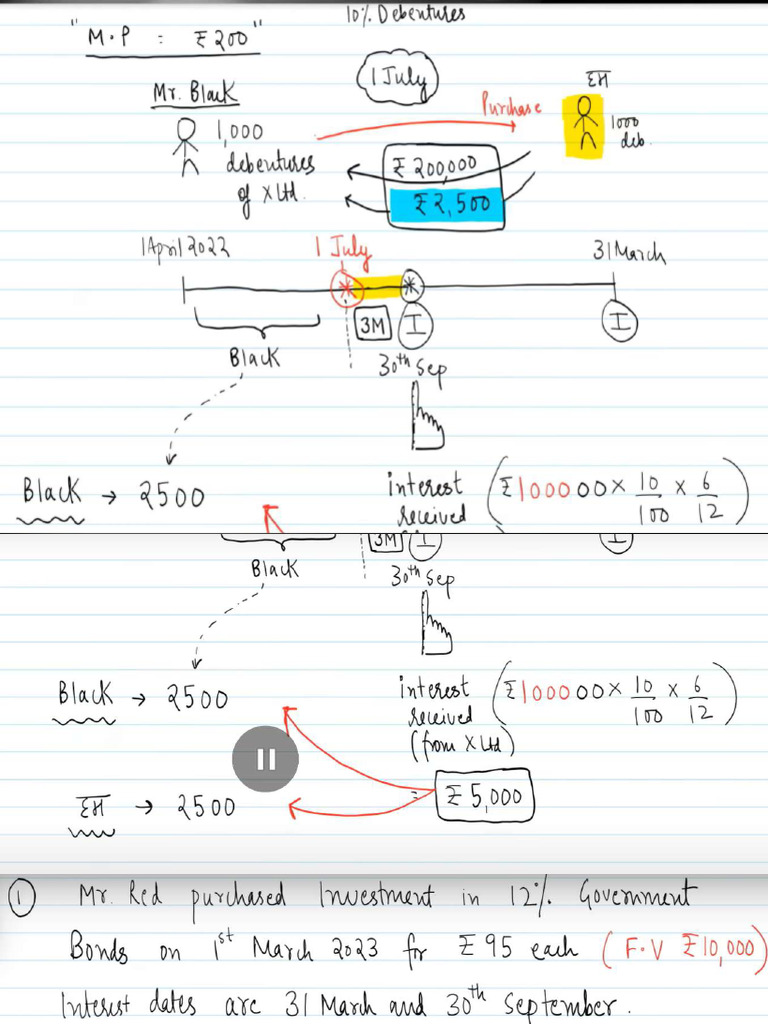 10% Debentures
"M.P : ₹200"
1 July
Mr. Black
Purchase
1,000
debentures
of X Ltd.
1000
deb.
₹ 200,000
₹ 2,500
1 April 2022
1 July
31 March
3M
I
I
Black
30th Sep
Black → 2500
interest
received
(₹100000 × 10/100 × 6/12)
3M
I
I
Black
30th Sep
Black → 2500
interest
received
(from X Ltd)
(₹100000 × 10/100 × 6/12)
→ 2500
= ₹ 5,000
① Mr. Red purchased Investment in 12% Government
Bonds on 1st March 2023 for ₹95 each (F.V ₹10,000)
Interest dates are 31 March and 30th September.